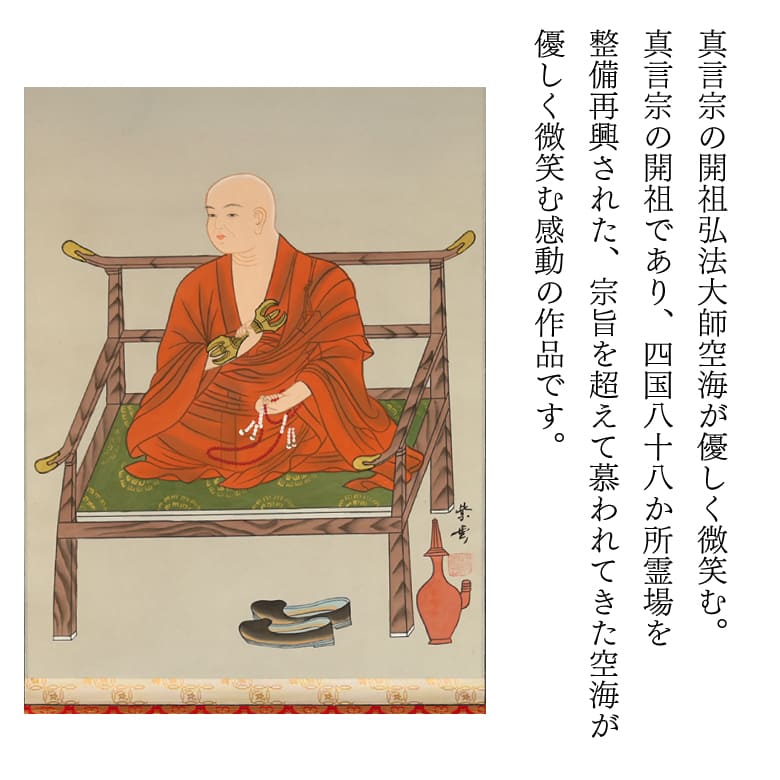 真言宗の開祖弘法大師空海が優しく微笑む。
真言宗の開祖であり、四国八十八か所霊場を
整備再興された、宗旨を超えて慕われてきた空海が
優しく微笑む感動の作品です。
紫雲